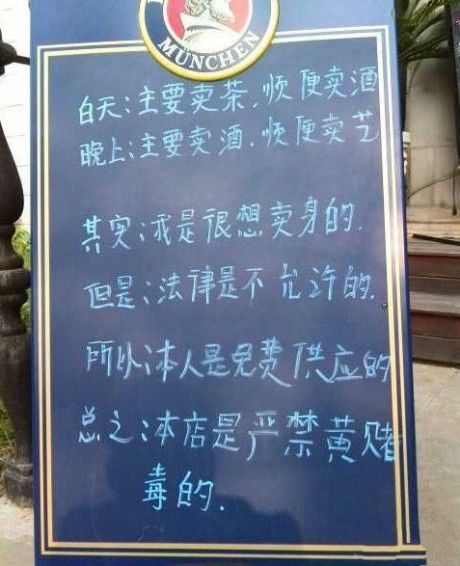 MÜNCHEN
白天:主要卖茶.顺便卖酒
晚上:主要卖酒.顺便卖艺
其实:我是很想卖身的.
但是:法律是不允许的.
所以:本人是免费供应的
总之:本店是严禁黄赌
毒的.